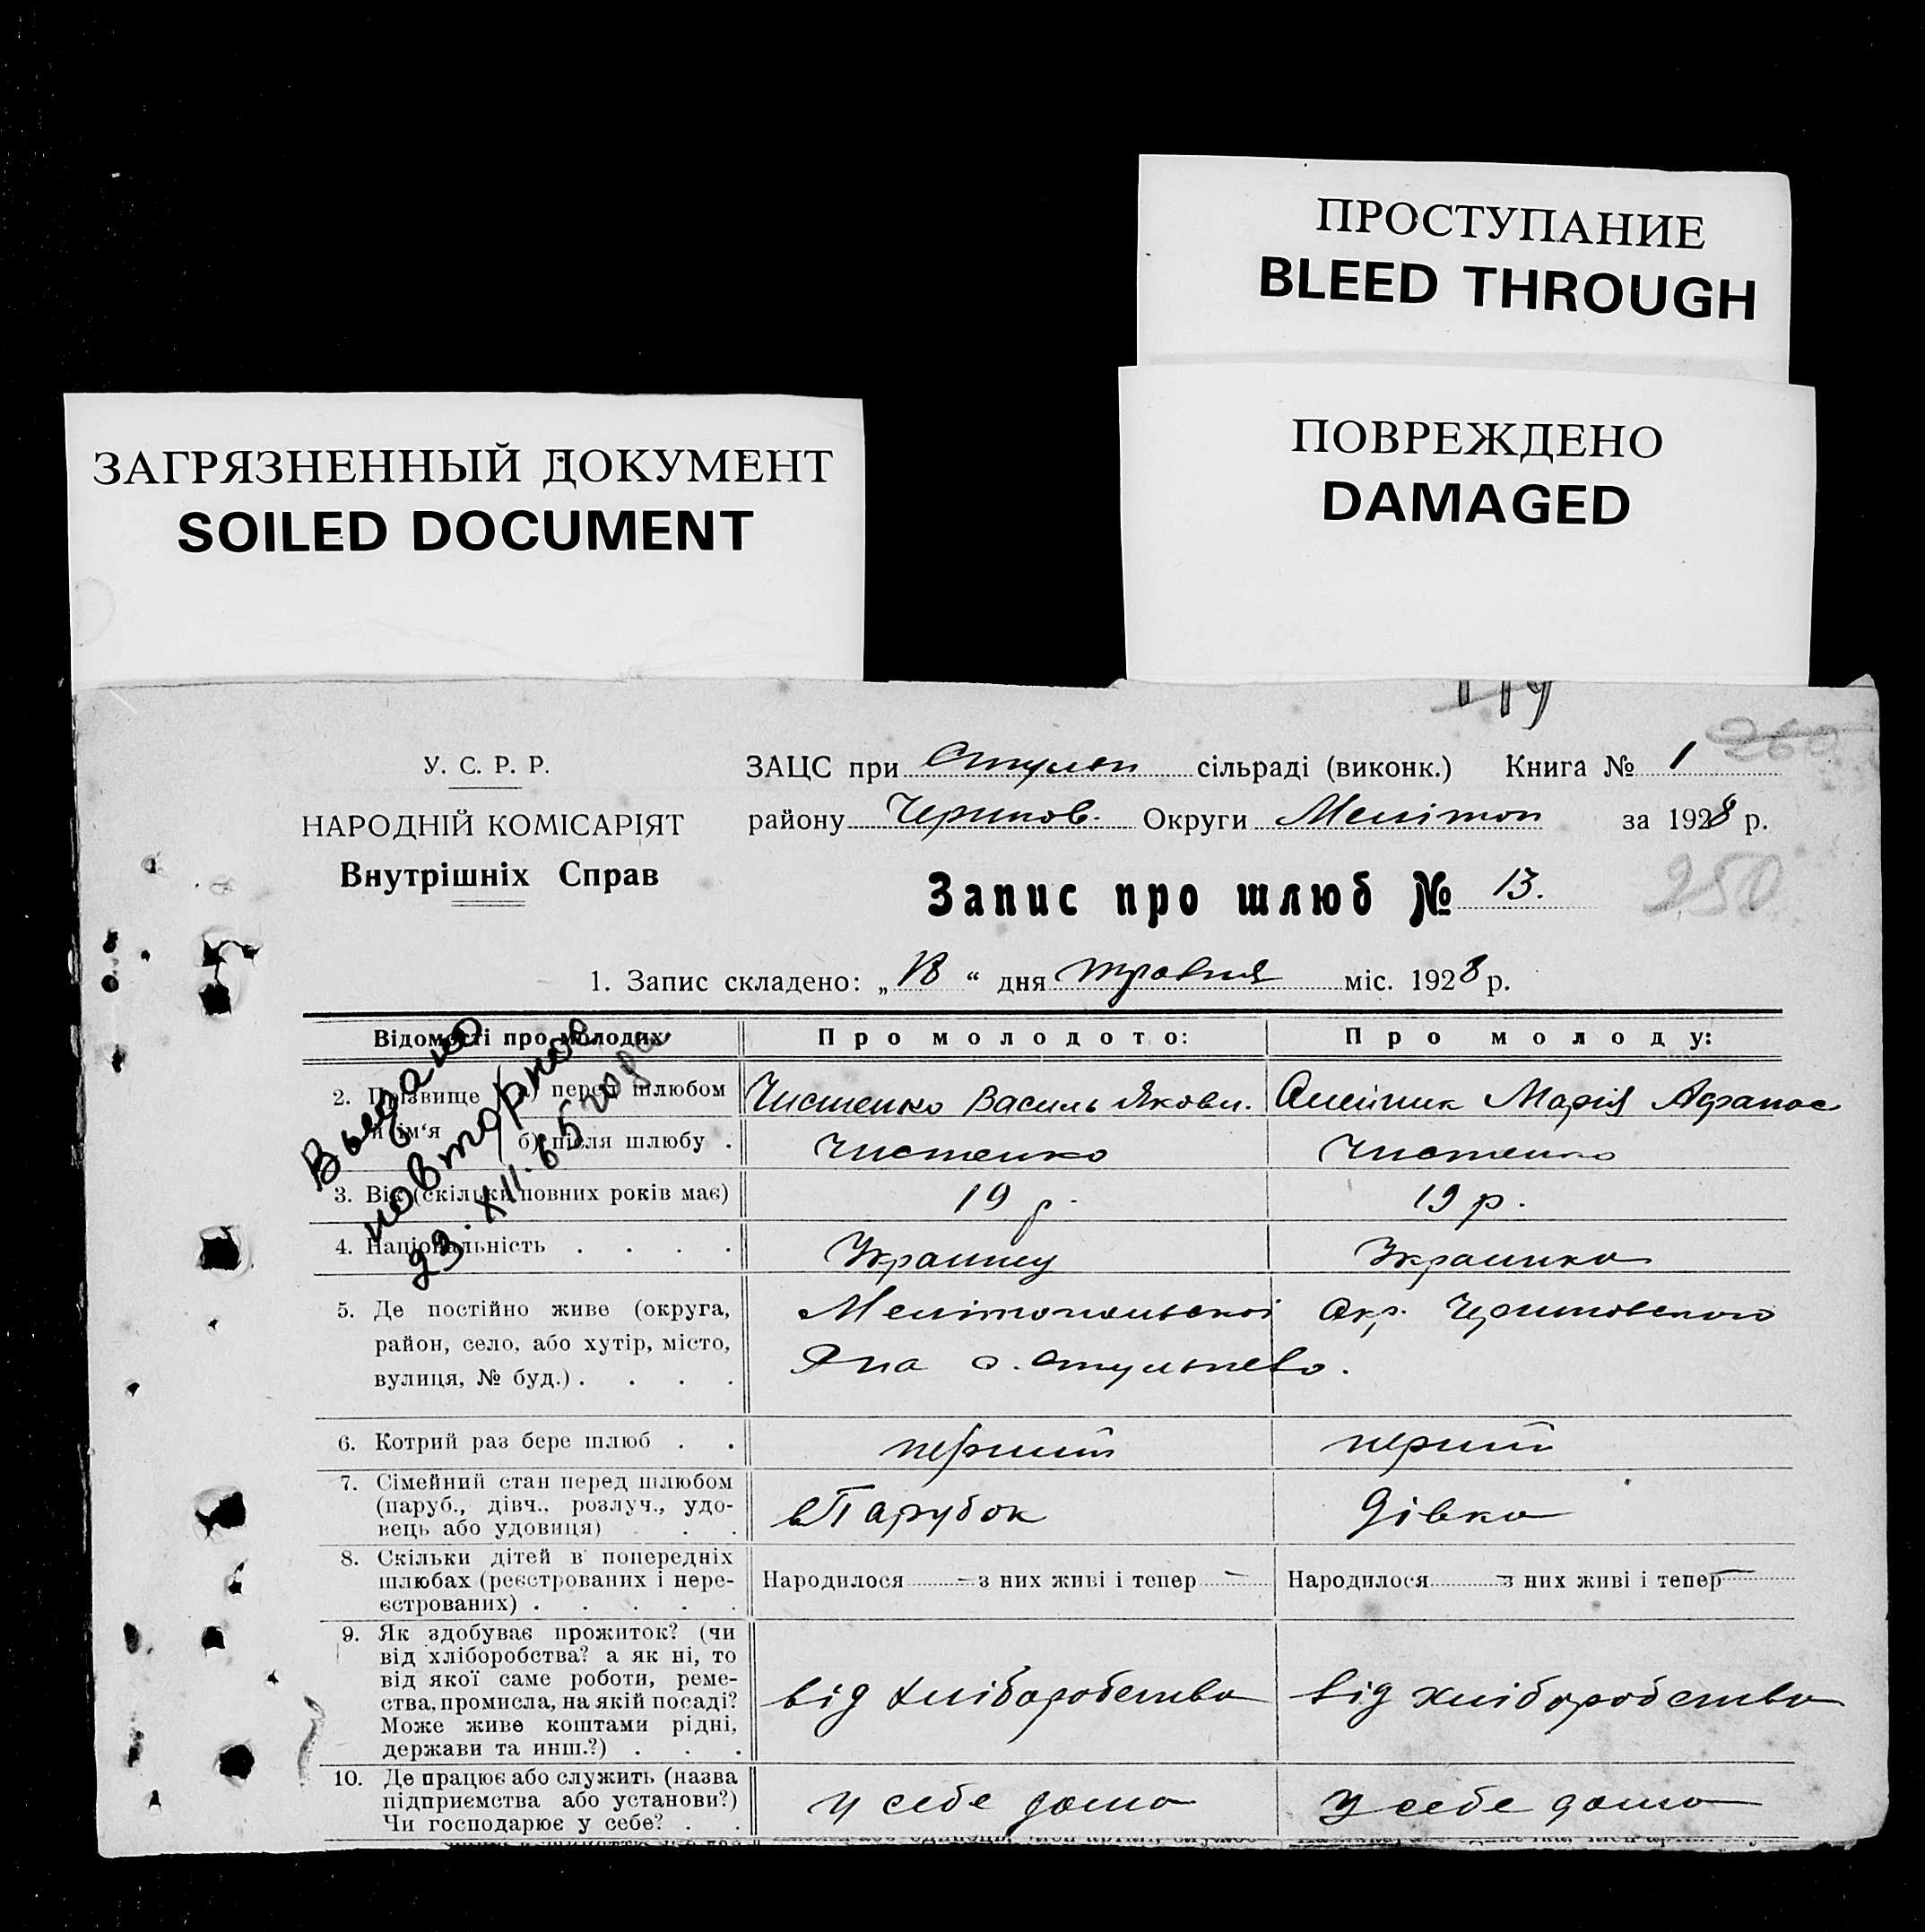 ПРОСТУПАНИЕ
BLEED THROUGH
ЗАГРЯЗНЕННЫЙ ДОКУМЕНТ
SOILED DOCUMENT
ПОВРЕЖДЕНО
DAMAGED
260
У. С. Р. Р.
НАРОДНІЙ КОМІСАРІЯТ
Внутрішніх Справ
ЗАЦС при сільраді (виконк.) Книга № 1
району Округи Мелітоп за 1928 р.
Запис про шлюб № 13.
250
1. Запис складено: „18“ дня травня міс. 1928 р.
Видано
повторное
23.XII.65 года
Відомості про молодих
Про молодого:
Про молоду:
2. Прізвище й ім‘я
а) перед шлюбом
Чистенко Василь Якови.
Олейник Марія Афанас
б) після шлюбу .
Чистенко
Чистенко
3. Вік (скільки повних років має)
19 р.
19 р.
4. Національність . . . .
Украинец
Украинка
5. Де постійно живе (округа,
район, село, або хутір, місто,
вулиця, № буд.) . . . .
Мелітопольскої Окр.
с.
6. Котрий раз бере шлюб . .
перший
перший
7. Сімейний стан перед шлюбом
(паруб., дівч., розлуч., удо-
вець або удовиця) . .
Парубок
Дівка
8. Скільки дітей в попередніх
шлюбах (реєстрованих і нере-
єстрованих) . . . . .
Народилося — з них живі і тепер —
Народилося — з них живі і тепер —
9. Як здобуває прожиток? (чи
від хліборобства? а як ні, то
від якої саме роботи, реме-
ства, промисла, на якій посаді?
Може живе коштами рідні,
держави та инш.?) . . .
від хліборобства
від хліборобства
10. Де працює або служить (назва
підприємства або установи?)
Чи господарює у себе? . .
у себе дома
у себе дома